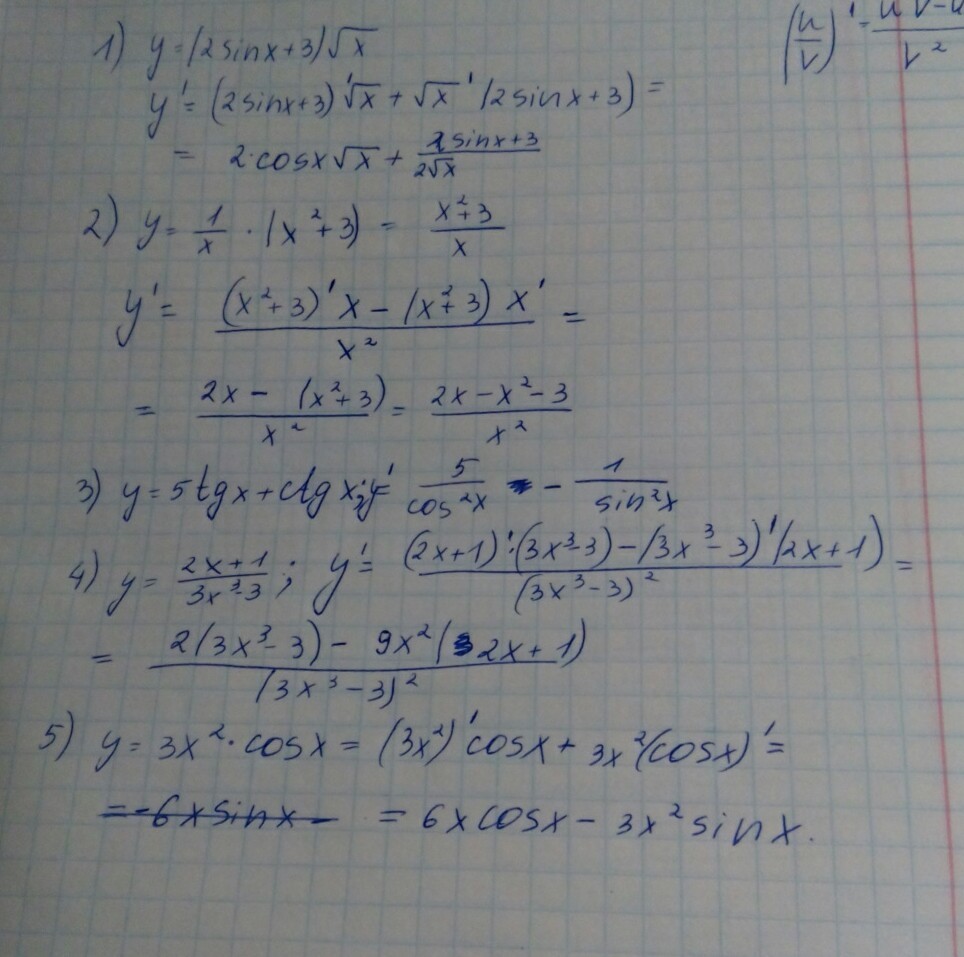 (u/v)' =
1) y = (2 sin x + 3)√x
y' = (2 sin x + 3)'√x + √x' (2 sin x + 3) =
= 2·cos x √x + (2 sin x + 3)/(2√x)
2) y = 1/x · (x² + 3) = (x² + 3)/x
y' = ((x² + 3)' x − (x² + 3) x')/x² =
= (2x − (x² + 3))/x² = (2x − x² − 3)/x²
3) y = 5 tg x + ctg x; y' 5/cos²x − 1/sin²x
4) y = (2x + 1)/(3x³ − 3); y' = ((2x + 1)'·(3x³ − 3) − (3x³ − 3)'(2x + 1))/(3x³ − 3)² =
= (2(3x³ − 3) − 9x²(2x + 1))/(3x³ − 3)²
5) y = 3x²·cos x = (3x²)' cos x + 3x²(cos x)' =
= −6x sin x − = 6x cos x − 3x² sin x.